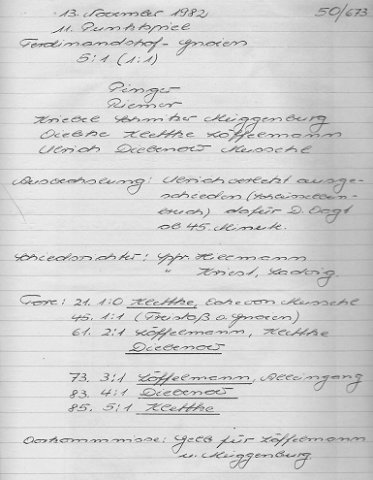 13. November 1982 50/673
11. Punktspiel
Ferdinandshof - Gnoien
5:1 (1:1)
Pinger
Riemer
Kriebel Schmitz Müggenburg
Diethe Kletthe Löffelmann
Ulrich Diebenow Muschel
Auswechslung: Ulrich verletzt ausge-
schieden (Schlüsselbein-
bruch) dafür D. Vogt
ab 45. Minute.
Schiedsrichter: Spfr.
" Kriest, Ludwig.
Tore: 21. 1:0 Kletthe, Ecke von Muschel
45. 1:1 (Freistoß v. Gnoien)
61. 2:1 Löffelmann, Kletthe
Diebenow
73. 3:1 Löffelmann, Alleingang
83. 4:1 Diebenow
85. 5:1 Kletthe
Vorkommnisse: Gelb für Löffelmann
u. Müggenburg.